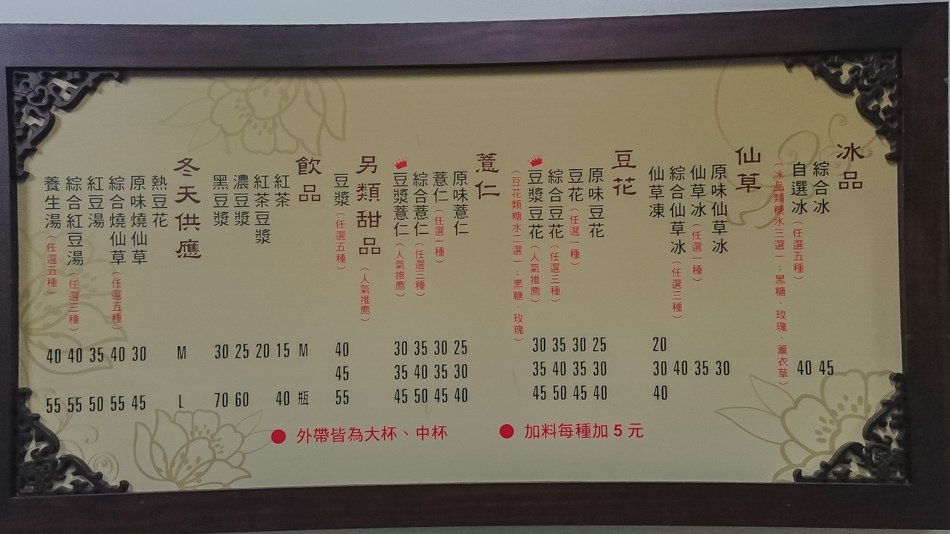 冰品
綜合冰 45
自選冰(任選五種) 40
(冰品類糖水三選一:黑糖、玫瑰、薰衣草)
仙草
原味仙草冰 30
仙草冰(任選一種) 35
綜合仙草冰(任選三種) 40
仙草凍 20 30 40
豆花
原味豆花 25 30 40
豆花(任選一種) 30 35 45
綜合豆花(任選三種) 35 40 50
豆漿豆花(人氣推薦) 30 35 45
(豆花類糖水二選一:黑糖、玫瑰)
薏仁
原味薏仁 25 30 40
薏仁(任選一種) 30 35 45
綜合薏仁(任選三種) 35 40 50
豆漿薏仁(人氣推薦) 30 35 45
另類甜品(人氣推薦)
豆漿(任選五種) 40 45 55
飲品 M 瓶
紅茶 15 40
紅茶豆漿 20
濃豆漿 25 60
黑豆漿 30 70
冬天供應 M L
熱豆花
原味燒仙草 30 45
綜合燒仙草(任選五種) 40 55
紅豆湯 35 50
綜合紅豆湯(任選三種) 40 55
養生湯(任選五種) 40 55
● 外帶皆為大杯、中杯
● 加料每種加 5 元